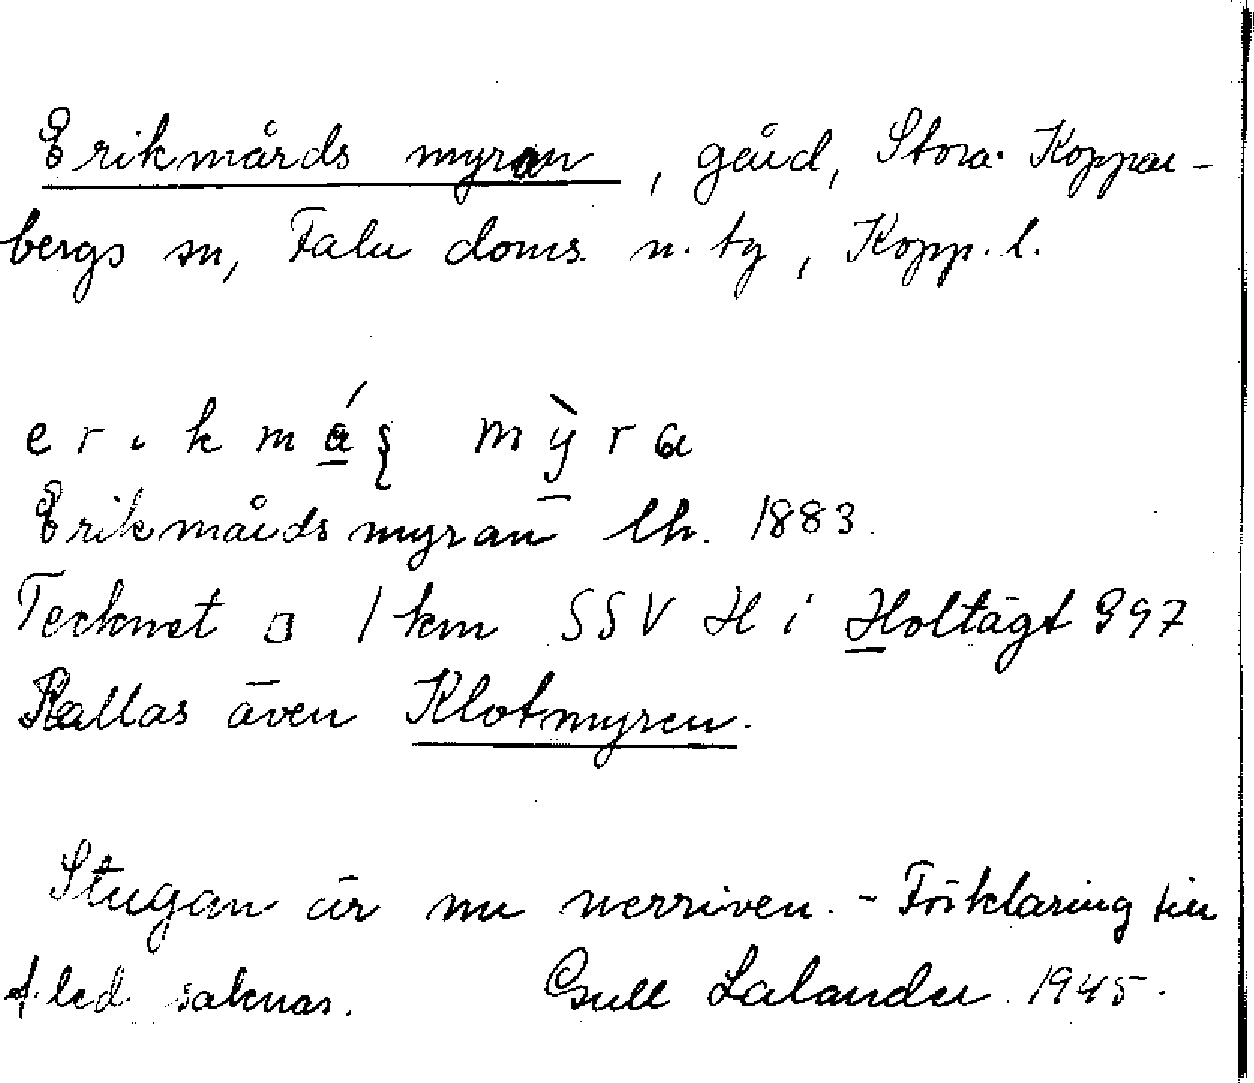 Erikmårds myran, gård, Stora Koppar-
bergs sn, Falu doms. n. tg, Kopp. l.
erikmáş mỳra
Erikmårdsmyran lh. 1883.
Tecknet □ 1 km SSV H i Holtägt 997
Kallas även Klotmyren.
Stugan är nu nerriven. - Förklaring till
f. led saknas. Gull Lalander. 1945.